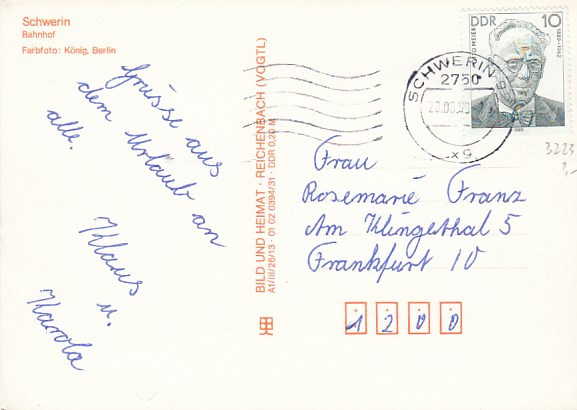 Schwerin
Bahnhof
Farbfoto: König, Berlin
Grüsse aus
dem Urlaub an
alle.
Klaus
u.
Karola
BILD UND HEIMAT · REICHENBACH (VOGTL)
A1/III/26/13 · 01 02 0394/31 · DDR 0,20 M
DDR 10
O MEIER
1889-1962
1989
SCHWERIN
2750
xg
3223
Frau
Rosemarie Franz
Am Klingethal 5
Frankfurt 10
1200